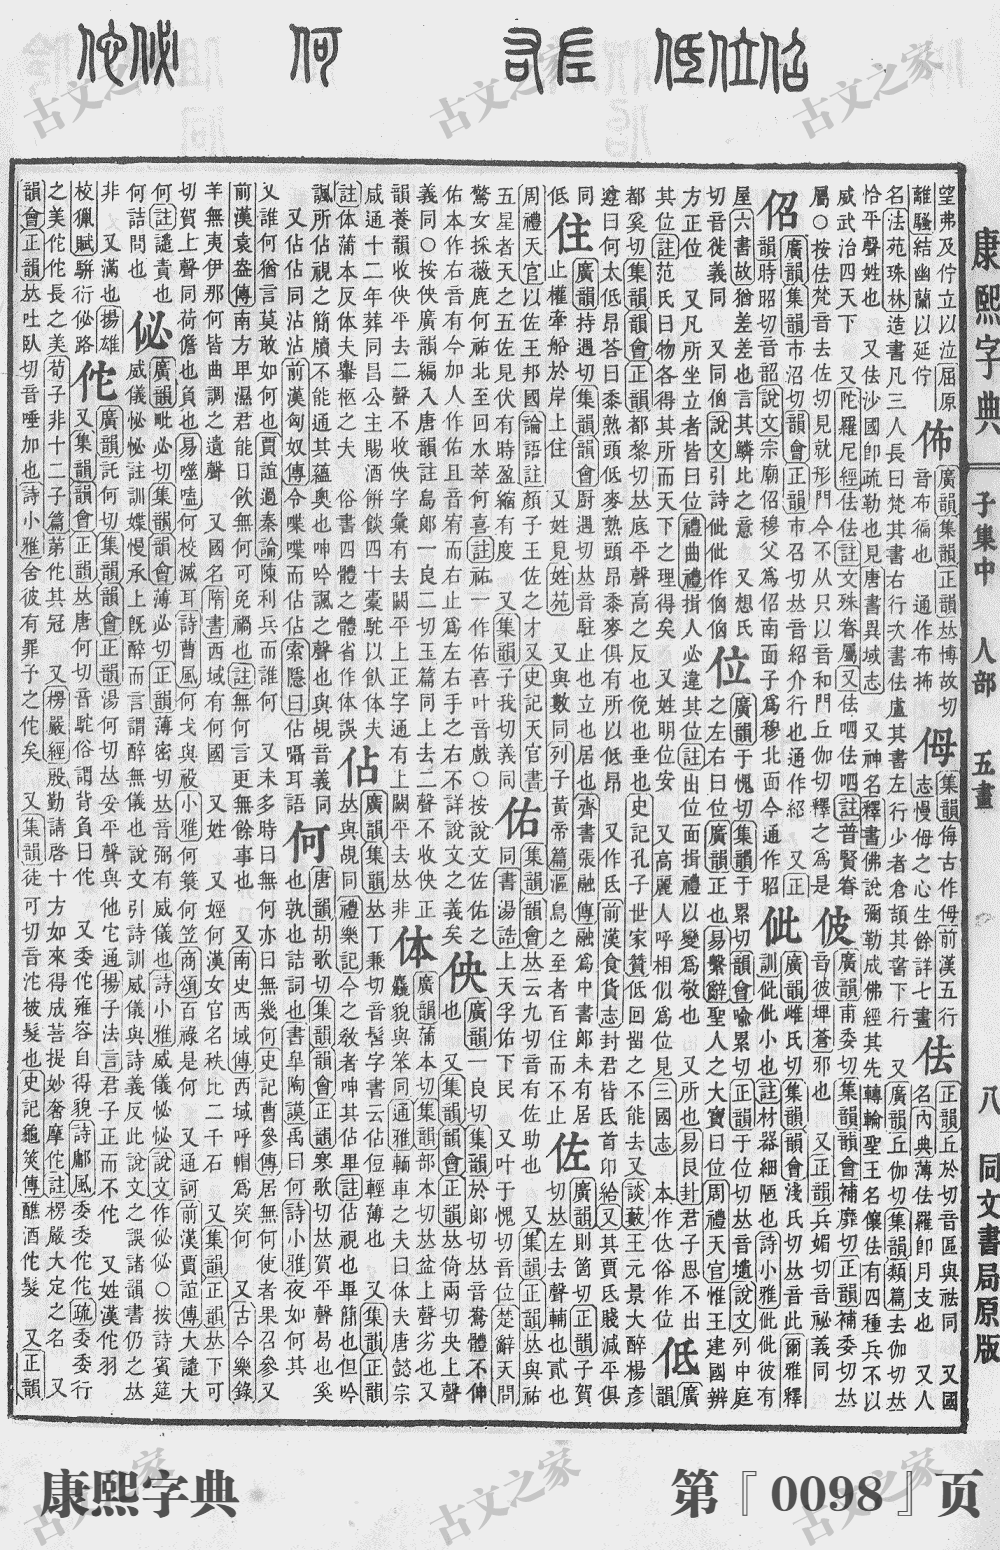 康熙字典 子集中 人部 五畫 八 同文書局原版
望弗及佇立以泣屈原
離騷結幽蘭以延佇
佈
廣韻集韻正韻𠀤博故切
音布徧也 通作布抪
㑄
集韻侮古作㑄前漢五行
志慢㑄之心生 餘詳七畫
佉
正韻丘於切音區與祛同 又國
名內典薄佉羅卽月支也 又人
名法苑珠林造書凡三人長曰梵其書右行次書佉盧其書左行少者倉頡其書下行 又廣韻丘伽切集韻類篇去伽切𠀤
恰平聲姓也 又佉沙國卽疏勒也見唐書異域志 又神名釋書佛說彌勒成佛經其先轉輪聖王名儴佉有四種兵不以
威武治四天下 又陀羅尼經佉佉註文殊眷屬又佉呬佉呬註普賢眷
屬○按佉梵音去佐切見就形門今不从只以音和門丘伽切釋之爲是
佊
廣韻甫委切集韻韻會補靡切正韻補委切𠀤
音彼埤蒼邪也 又正韻兵媚切音祕義同
佋
廣韻集韻市沼切韻會正韻市召切𠀤音紹介行也通作紹 又正
韻時昭切音韶說文宗廟佋穆父爲佋南面子爲穆北面今通作昭
佌
廣韻雌氏切集韻韻會淺氏切𠀤音此爾雅釋
訓佌佌小也註材器細陋也詩小雅佌佌彼有
屋六書故猶差差也言其鱗比之意 又想氏
切音徙義同 又同㑢說文引詩佌佌作㑢㑢
位
廣韻于愧切集韻于累切韻會喻累切正韻于位切𠀤音壝說文列中庭
之左右曰位廣韻正也易繫辭聖人之大寶曰位周禮天官惟王建國辨
方正位 又凡所坐立者皆曰位禮曲禮揖人必違其位註出位面揖禮以變爲敬也 又所也易艮封君子思不出
其位註范氏曰物各得其所而天下之理得矣 又姓明位安 又高麗人呼相似爲位見三國志 本作㑀俗作位
低
廣韻
都奚切集韻韻會正韻都黎切𠀤底平聲高之反也俛也垂也史記孔子世家贊低回畱之不能去又談藪王元景大醉楊彥
遵曰何太低昂荅曰黍熟頭低麥熟頭昂黍麥俱有所以低昂 又作氐前漢食貨志封君皆氐首卬給又其賈氐賤減平俱
同
低
住
廣韻持遇切集韻韻會厨遇切𠀤音駐止也立也居也齊書張融傳融爲中書郎未有居
止權牽船於岸上住 又姓見姓苑 又與數同列子黃帝篇漚鳥之至者百住而不止
佐
廣韻則箇切正韻子賀
切𠀤左去聲輔也貳也
周禮天官以佐王邦國論語註顏子王佐之才又史記天官書
五星者天之五佐見伏有時盈縮有度 又集韻子我切義同
佑
集韻韻會𠀤云九切音有佐助也 又集韻正韻𠀤與祐
同書湯誥上天孚佑下民 又叶于愧切音位楚辭天問
驚女采薇鹿何祐北至回水萃何喜註祐一作佑喜叶音戲○按說文佐佑之
佑本作右音有今加人作佑且音宥而右止爲左右手之右不詳說文之義矣
佒
廣韻一良切集韻於郎切𠀤音鴦體不伸
也 又集韻韻會正韻𠀤倚兩切央上聲
義同○按佒廣韻編入唐韻註烏郎一良二切玉篇同上去二聲不收佒正
韻養韻收佒平去二聲不收佒字彙有去闕平上正字通有上闕平去𠀤非
体
廣韻蒲本切集韻部本切𠀤盆上聲劣也又
麤貌與笨同通雅輀車之夫曰体夫唐懿宗
咸通十二年葬同昌公主賜酒餠餤四十橐駝以飮体夫
註体蒲本反体夫轝柩之夫 俗書四體之體省作体誤
佔
廣韻集韻𠀤丁兼切音髻字書云佔侸輕薄也 又集韻正韻
𠀤與覘同禮樂記今之敎者呻其佔畢註佔視也畢簡也但吟
諷所佔視之簡牘不能通其蘊奧也呻吟諷之聲也與覘音義同
又佔佔同沾沾前漢匈奴傳令喋喋而佔佔索隱曰佔囁耳語
何
唐韻胡歌切集韻韻會正韻寒歌切𠀤賀平聲曷也奚
也孰也詰詞也書皐陶謨禹曰何 詩小雅夜如何其
又誰何猶言莫敢如何也賈誼過秦論陳利兵而誰何 又未多時曰無何亦曰無幾何史記曹參傳居無何使者果召參又
前漢袁盎傳南方𤰞濕君能日飮無何可免禍也註無何言更無餘事也 又南史西域傳西域呼帽爲突何 又古今樂錄
羊無夷伊那何皆曲調之遺聲 又國名隋書西域有何國 又姓 又娙何漢女官名秩比二千石 又集韻正韻𠀤下可
切賀上聲同荷儋也負也易噬嗑何校滅耳詩曹風何戈與祋小雅何蓑何笠商頌百祿是何 又通訶前漢賈誼傳大譴大
何註譴責也
何詰問也
佖
廣韻毗必切集韻韻會薄必切正韻薄密切𠀤音弼有威儀也詩小雅威儀怭怭說文作佖佖○按詩賓筵
威儀怭怭註訓媟慢承上旣醉而言謂醉無儀也說文引詩訓威儀與詩義反此說文之誤諸韻書仍之𠀤
非 又滿也揚雄
校獵賦騈衍佖路
佗
廣韻託何切集韻韻會正韻湯何切𠀤妥平聲與他它通揚子法言君子正而不佗 又姓漢佗羽
又集韻韻會正韻𠀤唐何切音駝俗謂背負曰佗 又委佗雍容自得貌詩鄘風委委佗佗疏委委行
之美佗佗長之美荀子非十二子篇第佗其冠 又楞嚴經殷勤請啓十方如來得成菩提妙奢摩佗註楞嚴大定之名 又
韻會正韻𠀤吐臥切音唾加也詩小雅舍彼有罪子之佗矣 又集韻徒可切音沱被髮也史記龜筴傳醮酒佗髮 又正韻
康熙字典 第『0098』页
古文之家